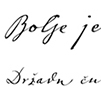 Bolje je
Državu ću